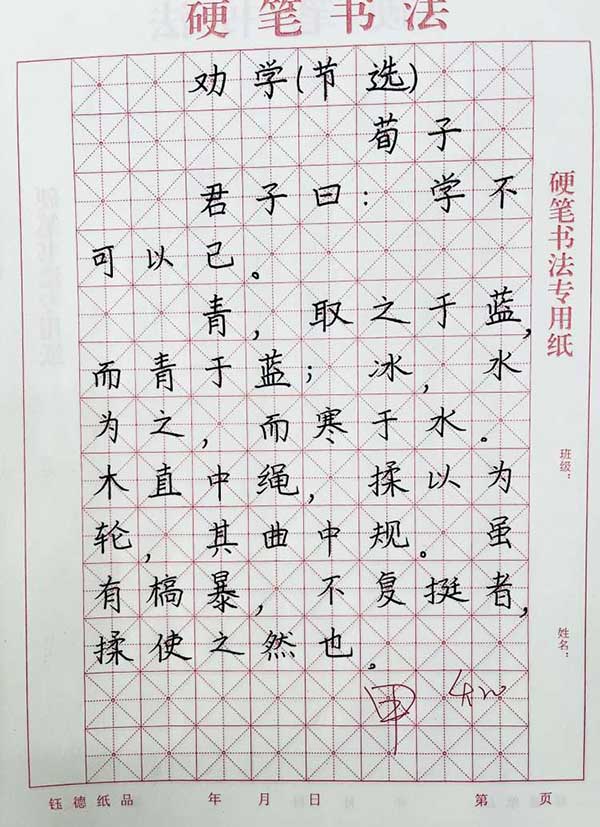 硬笔书法
劝学(节选)
荀子
君子曰：学不
可以己。
青，取之于蓝，
而青于蓝；冰，水
为之，而寒于水。
木直中绳，揉以为
轮，其曲中规。虽
有槁暴，不复挺者，
揉使之然也。
甲
硬笔书法专用纸
班级：
姓名：
钰德纸品 年 月 日 第 页